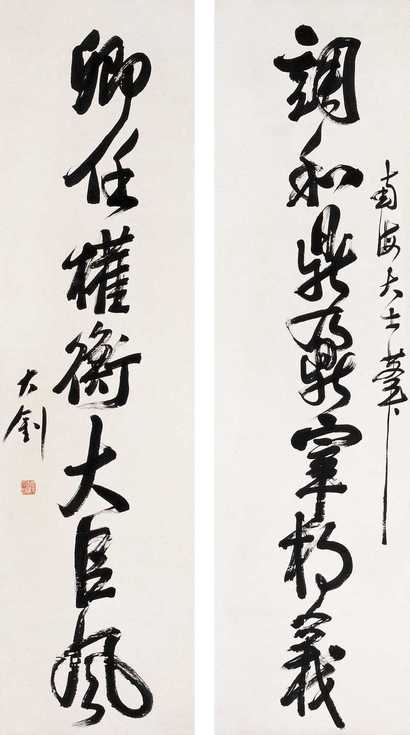 南海大士
調和鼎鼐宰相義
卿任權衡大臣風
大釗